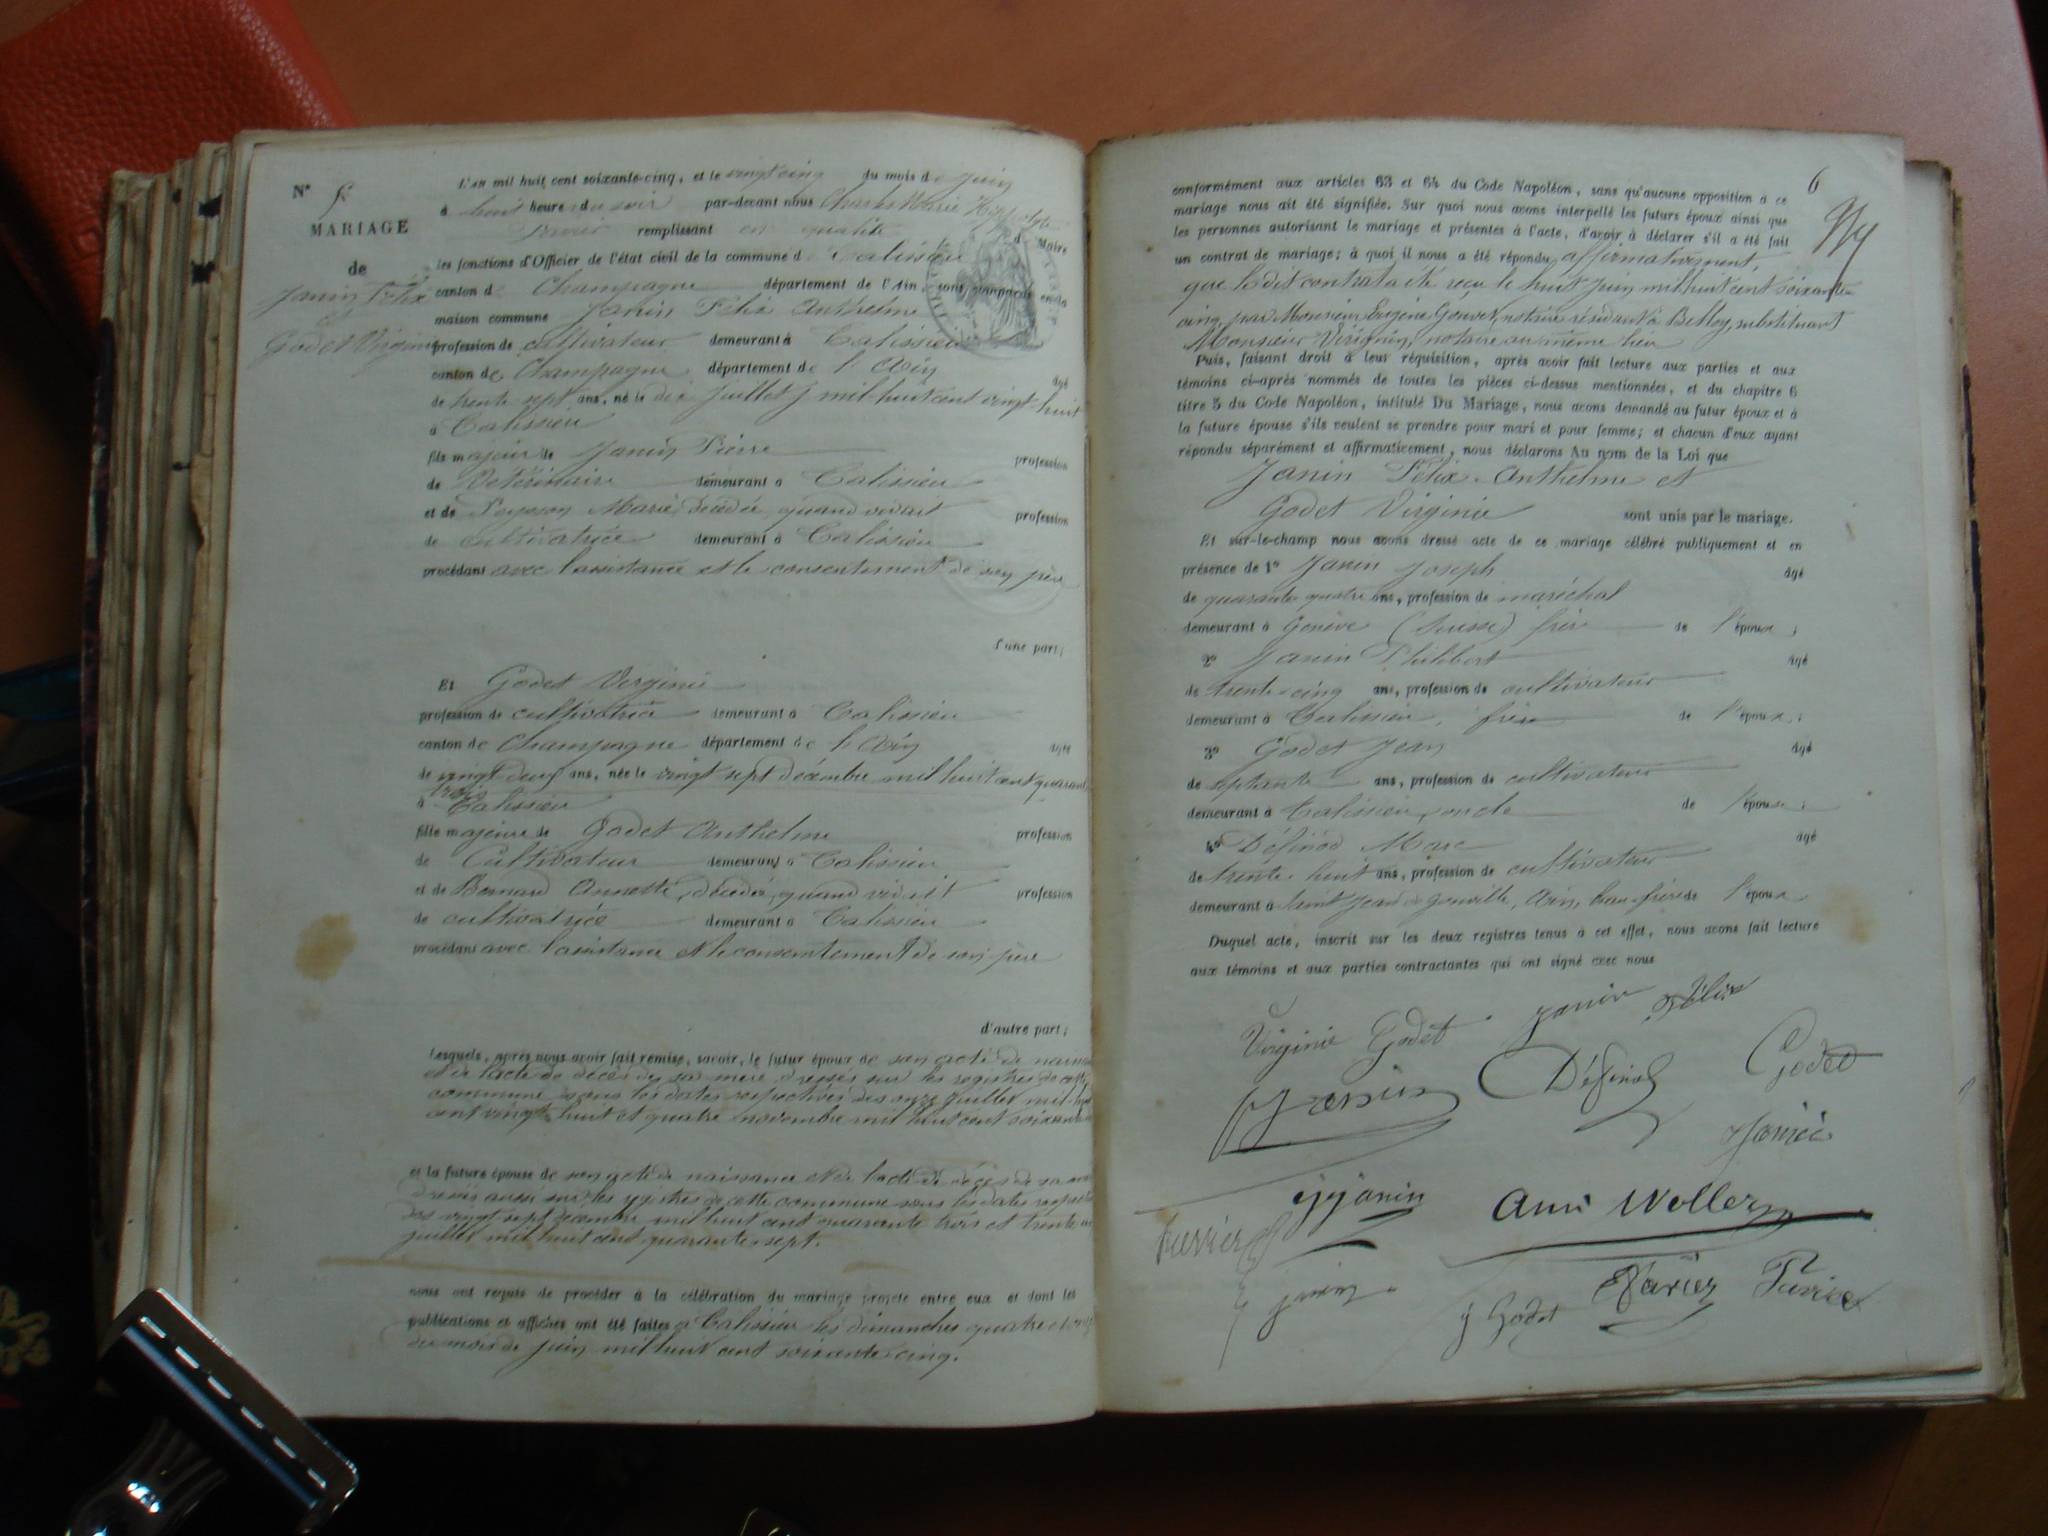 N° 5
MARIAGE
de
Janin Félix
et
Godet Virginie
L'an mil huit cent soixante-cinq, et le vingt cinq du mois de juin
à huit heures du soir par-devant nous Charles Marie Hyppolite
remplissant en qualité d Maire
les fonctions d'Officier de l'état civil de la commune d Talissieu
canton d Champagne département de l'Ain sont comparus en la
maison commune Janin Félix Anthelme
profession de cultivateur demeurant à Talissieu
canton de Champagne département de l'Ain âgé
de trente sept ans, né le dix juillet mil huit cent vingt-huit
à Talissieu
fils majeur de Janin Pierre profession
de Vétérinaire demeurant à Talissieu
et de Peysson Marie, décédée, quand vivait profession
de cultivatrice demeurant à Talissieu
procédant avec l'assistance et le consentement de son père
d'une part;
Et Godet Virginie
profession de cultivatrice demeurant à Talissieu
canton de Champagne département de l'Ain âgée
de vingt deux ans, née le vingt sept décembre mil huit cent quarante
trois
à Talissieu
fille majeure de Godet Anthelme profession
de Cultivateur demeurant à Talissieu
et de Bernard Annette, décédée, quand vivait profession
de cultivatrice demeurant à Talissieu
procédant avec l'assistance et le consentement de son père
d'autre part;
Lesquels, après nous avoir fait remise, savoir, le futur époux de son acte de
et de l'acte de décès de sa mère dressés sur les registres de cette
commune sous les dates respectives des onze juillet mil
cent vingt huit et quatre novembre mil huit cent soixante
et la future épouse de son acte de naissance et de l'acte de décès de sa
dressés aussi sur les registres de cette commune sous les dates
des vingt sept décembre mil huit cent quarante trois et trente
juillet mil huit cent quarante sept.
nous ont requis de procéder à la célébration du mariage projeté entre eux et dont les
publications et affiches ont été faites à Talissieu les dimanches quatre et onze
du mois de juin mil huit cent soixante cinq.
6
conformément aux articles 63 et 64 du Code Napoléon, sans qu'aucune opposition à ce
mariage nous ait été signifiée. Sur quoi nous avons interpellé les futurs époux ainsi que
les personnes autorisant le mariage et présentes à l'acte, d'avoir à déclarer s'il a été fait
un contrat de mariage; à quoi il nous a été répondu affirmativement,
que ledit contrat a été reçu le huit juin mil huit cent soixante
cinq par Monsieur Eugène Gouvet, notaire résidant à Belley, substituant
Monsieur notaire au même lieu
Puis, faisant droit à leur réquisition, après avoir fait lecture aux parties et aux
témoins ci-après nommés de toutes les pièces ci-dessus mentionnées, et du chapitre 6
titre 5 du Code Napoléon, intitulé Du Mariage, nous avons demandé au futur époux et à
la future épouse s'ils veulent se prendre pour mari et pour femme; et chacun d'eux ayant
répondu séparément et affirmativement, nous déclarons Au nom de la Loi que
Janin Félix-Anthelme et
Godet Virginie sont unis par le mariage.
Et sur-le-champ nous avons dressé acte de ce mariage célébré publiquement et en
présence de 1° Janin Joseph âgé
de quarante quatre ans, profession de maréchal
demeurant à Genève (Suisse) frère de l'époux;
2° Janin Philibert âgé
de trente-cinq ans, profession de cultivateur
demeurant à Talissieu, frère de l'époux;
3° Godet Jean âgé
de septante ans, profession de cultivateur
demeurant à Talissieu, oncle de l'épouse;
4° Définod Marc âgé
de trente huit ans, profession de cultivateur
demeurant à Saint Jean de Gonville, Ain, beau-frère de l'époux
Duquel acte, inscrit sur les deux registres tenus à cet effet, nous avons fait lecture
aux témoins et aux parties contractantes qui ont signé avec nous
Virginie Godet janin Félix
Définod Godet
jjanin Ami Woller
janin j Godet